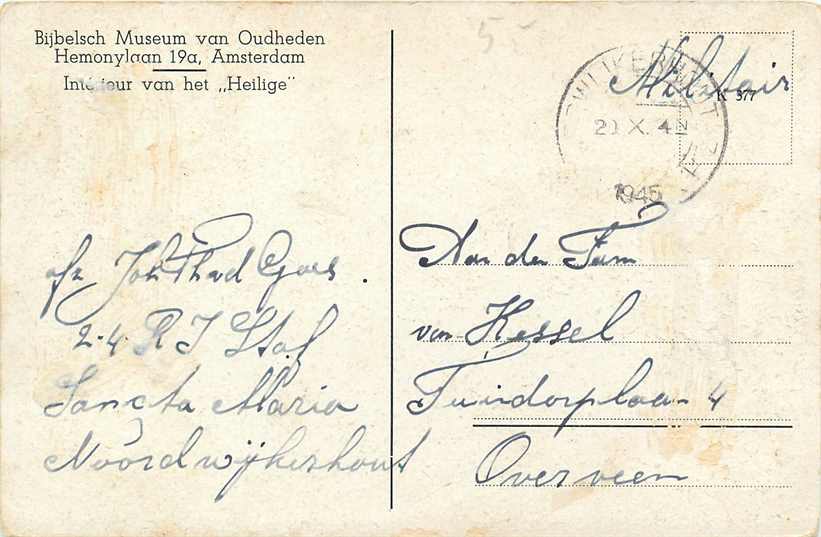 Bijbelsch Museum van Oudheden
Hemonylaan 19a, Amsterdam
Interieur van het „Heilige"
5-
Militair
K 377
20 X. 4
1945
afz Joh Th vd Goes.
2-4 R I Staf
Sancta Maria
Noordwijkerhout
Aan den Fam
van Kessel
Tuindorplaan 4
Overveen